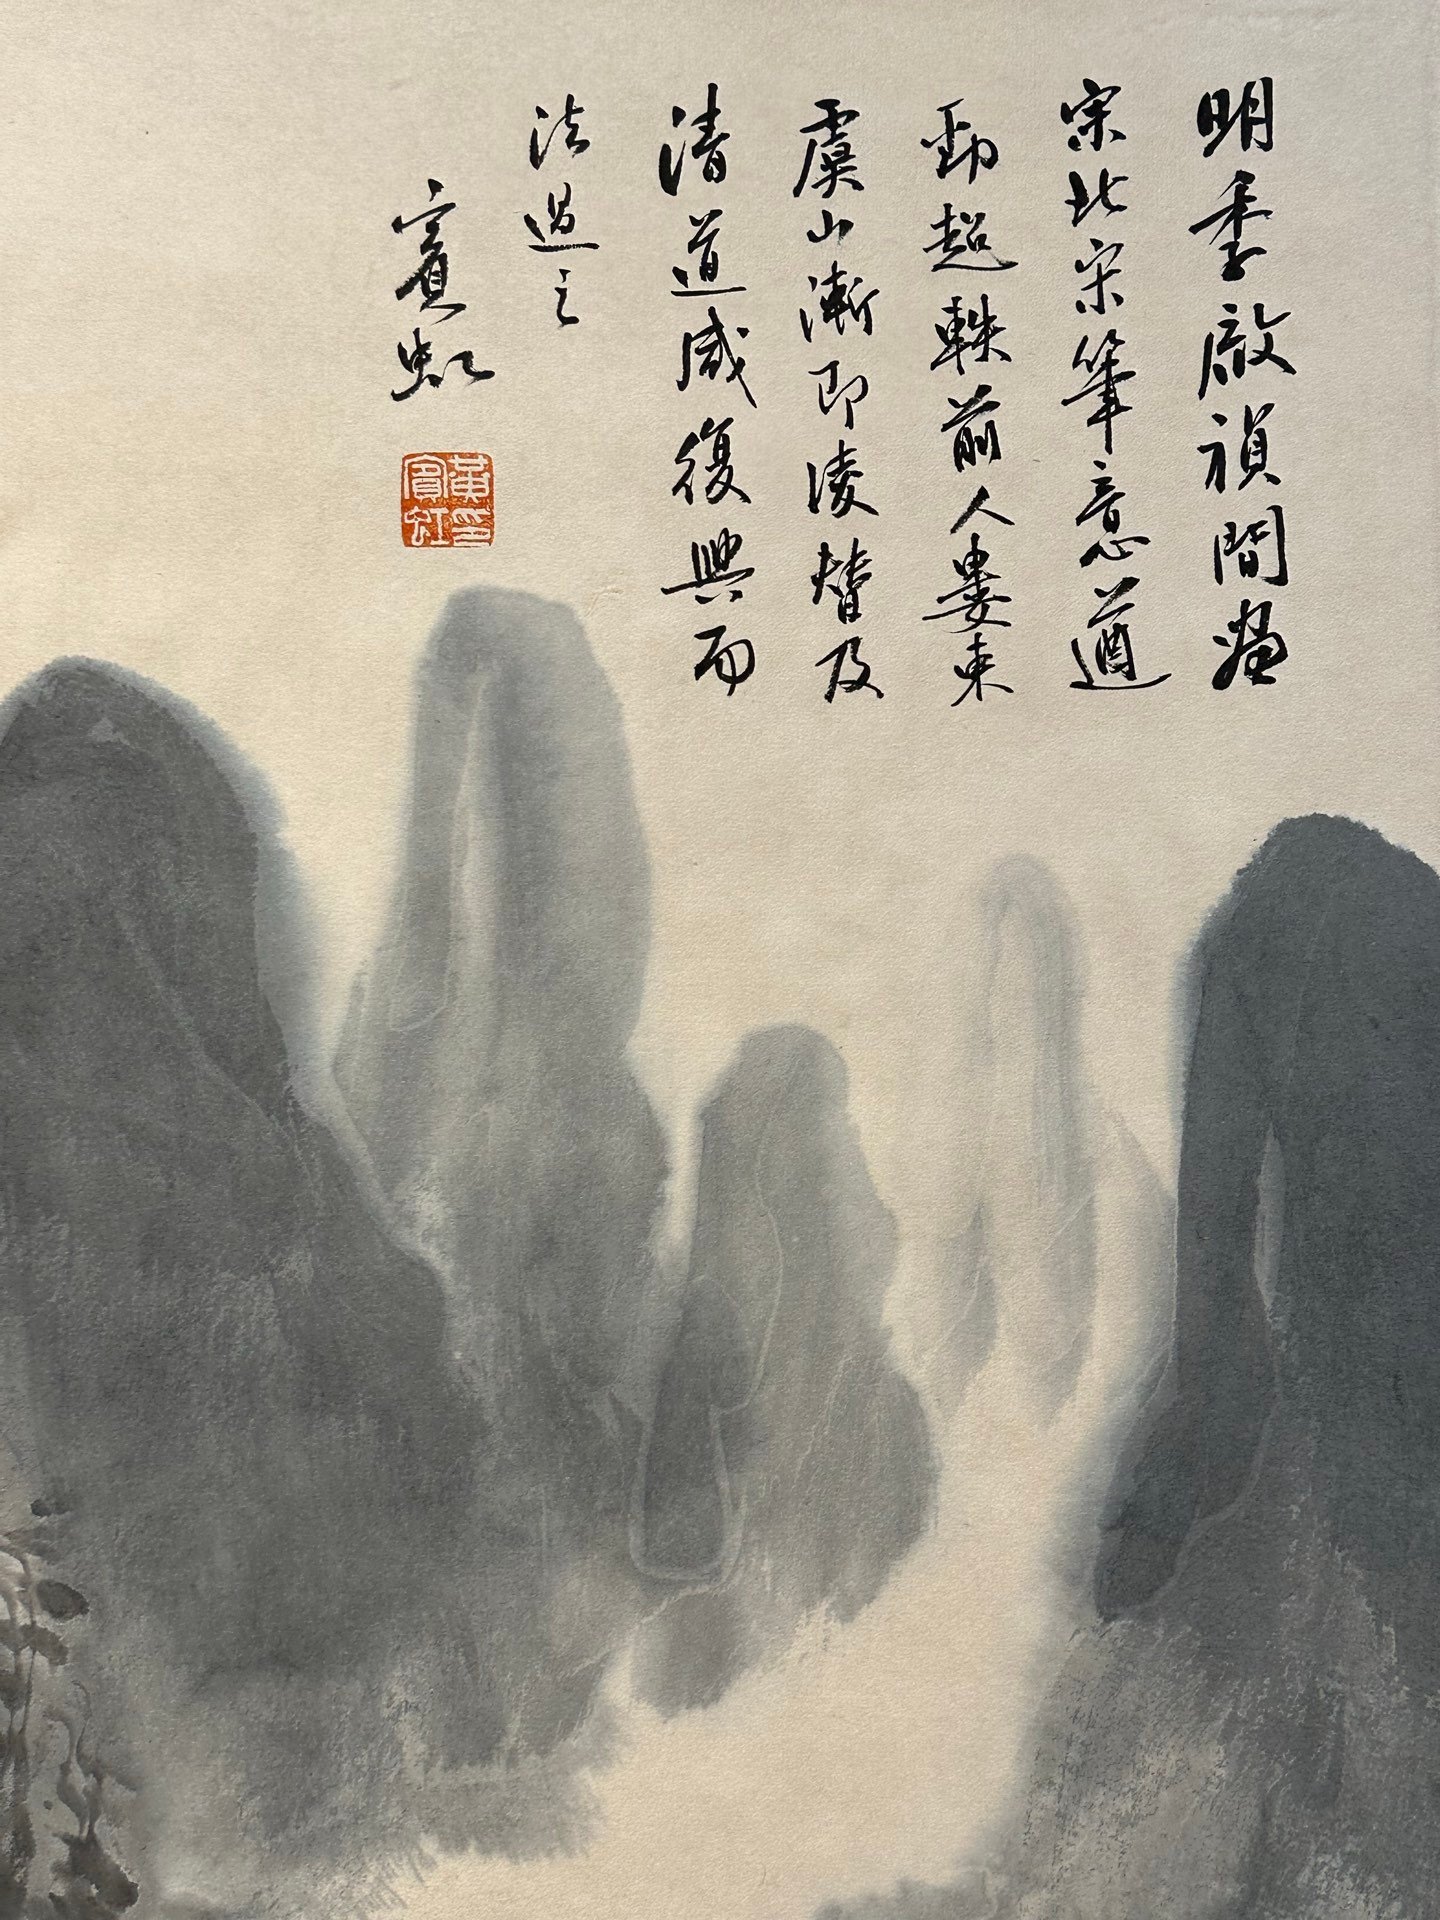 明季啟禎間畫
宗北宋筆意遒
勁超軼前人婁東
虞山漸即淩替及
清道咸復興而
法過之
賓虹
黃賓虹印